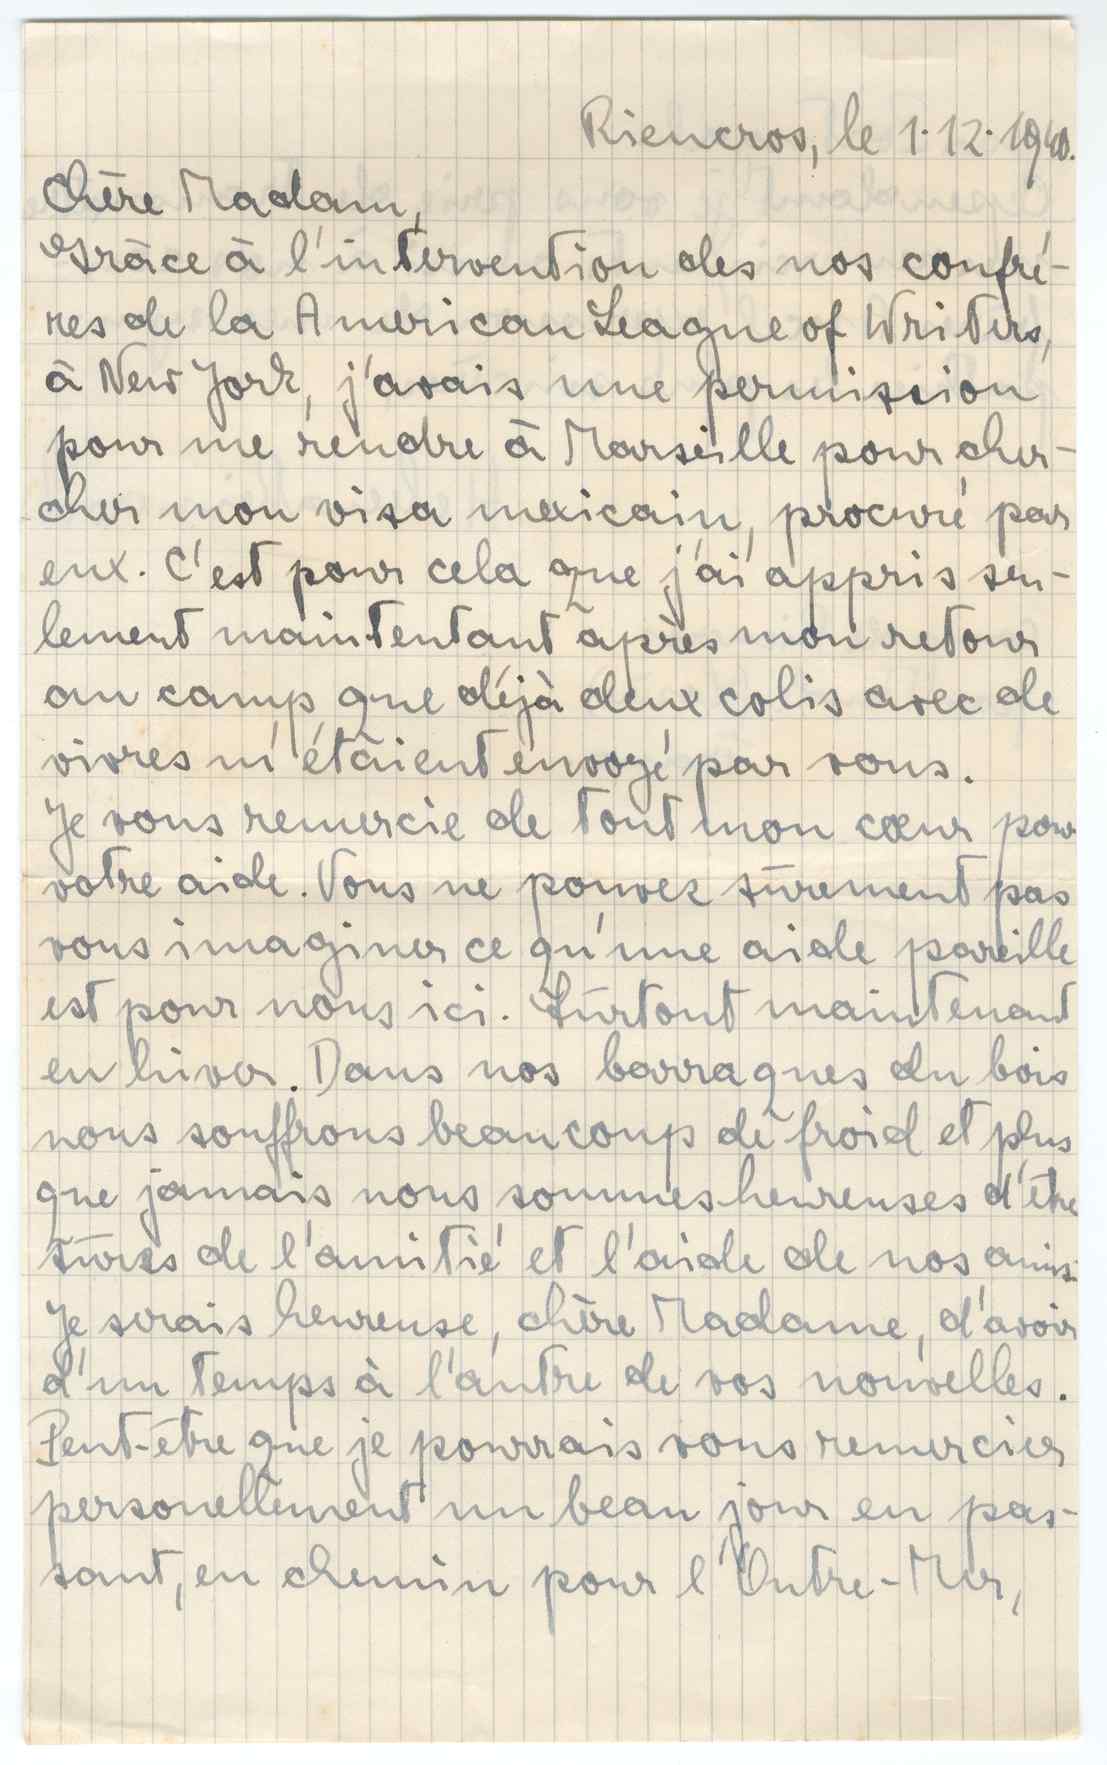 Riencros, le 1·12·1940.
Chère Madam,
Grâce à l'intervention des nos confré-
res de la American League of Writers,
à New York, j'avais une permission
pour me rendre à Marseille pour cher-
cher mon visa mexicain, procuré par
eux. C'est pour cela que j'ai appris seu-
lement maintentant après mon retour
au camp que déjà deux colis avec de
vivres m'étaient envoyé par vous.
Je vous remercie de tout mon cœur pour
votre aide. Vous ne pouvez sûrement pas
vous imaginer ce qu'une aide pareille
est pour nous ici. Surtout maintenant
en hiver. Dans nos barraques du bois
nous souffrons beaucoup de froid et plus
que jamais nous sommes heureuses d'être
sûres de l'amitié et l'aide de nos amis.
Je serais heureuse, chère Madame, d'avoir
d'un temps à l'autre de vos nouvelles.
Peut-être que je pourrais vous remercier
personellement un beau jour en pas-
sant, en chemin pour l'Outre-Mer,